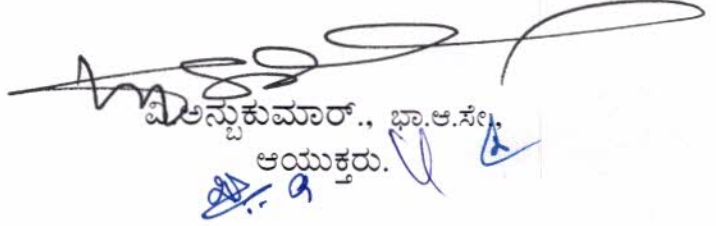 ವಿ.ಅನ್ಬುಕುಮಾರ್., ಭಾ.ಆ.ಸೇ.,
ಆಯುಕ್ತರು.